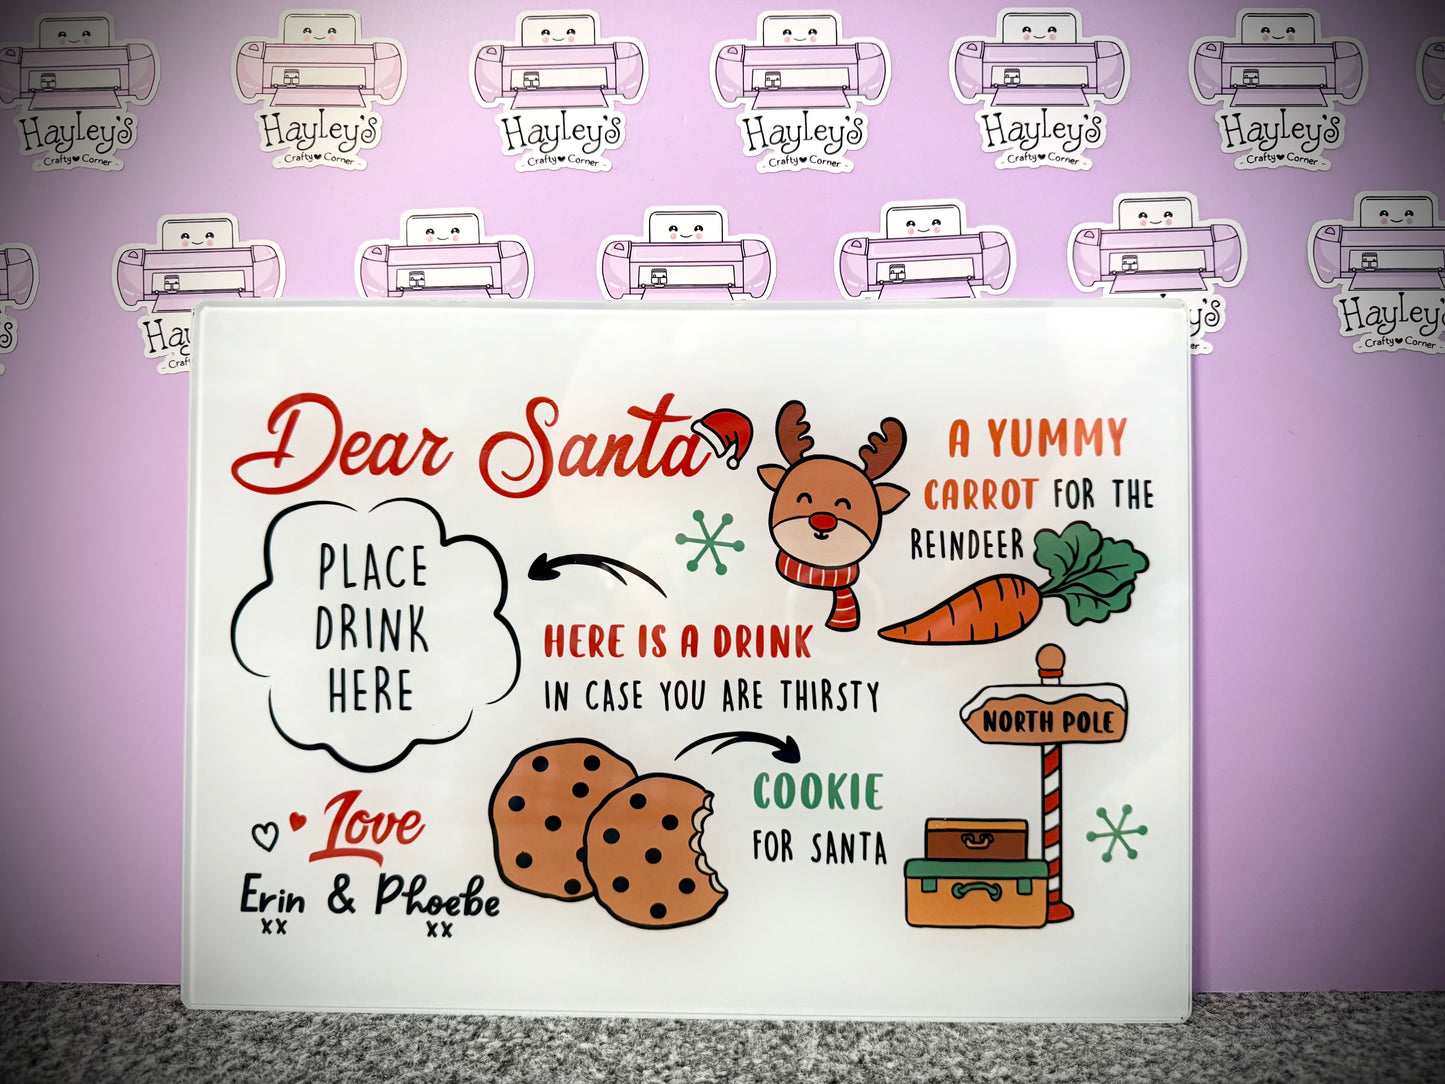 Hayley's
- Crafty Corner -
Hayley's
- Crafty Corner -
Hayley's
- Crafty Corner -
Hayley's
- Crafty Corner -
Hayley's
- Crafty Corner -
Hayley's
- Crafty Corner -
Hayley's
- Crafty Corner -
Dear Santa
PLACE
DRINK
HERE
A YUMMY
CARROT FOR THE
REINDEER
HERE IS A DRINK
IN CASE YOU ARE THIRSTY
NORTH POLE
COOKIE
FOR SANTA
Love
Erin & Phoebe
xx
xx